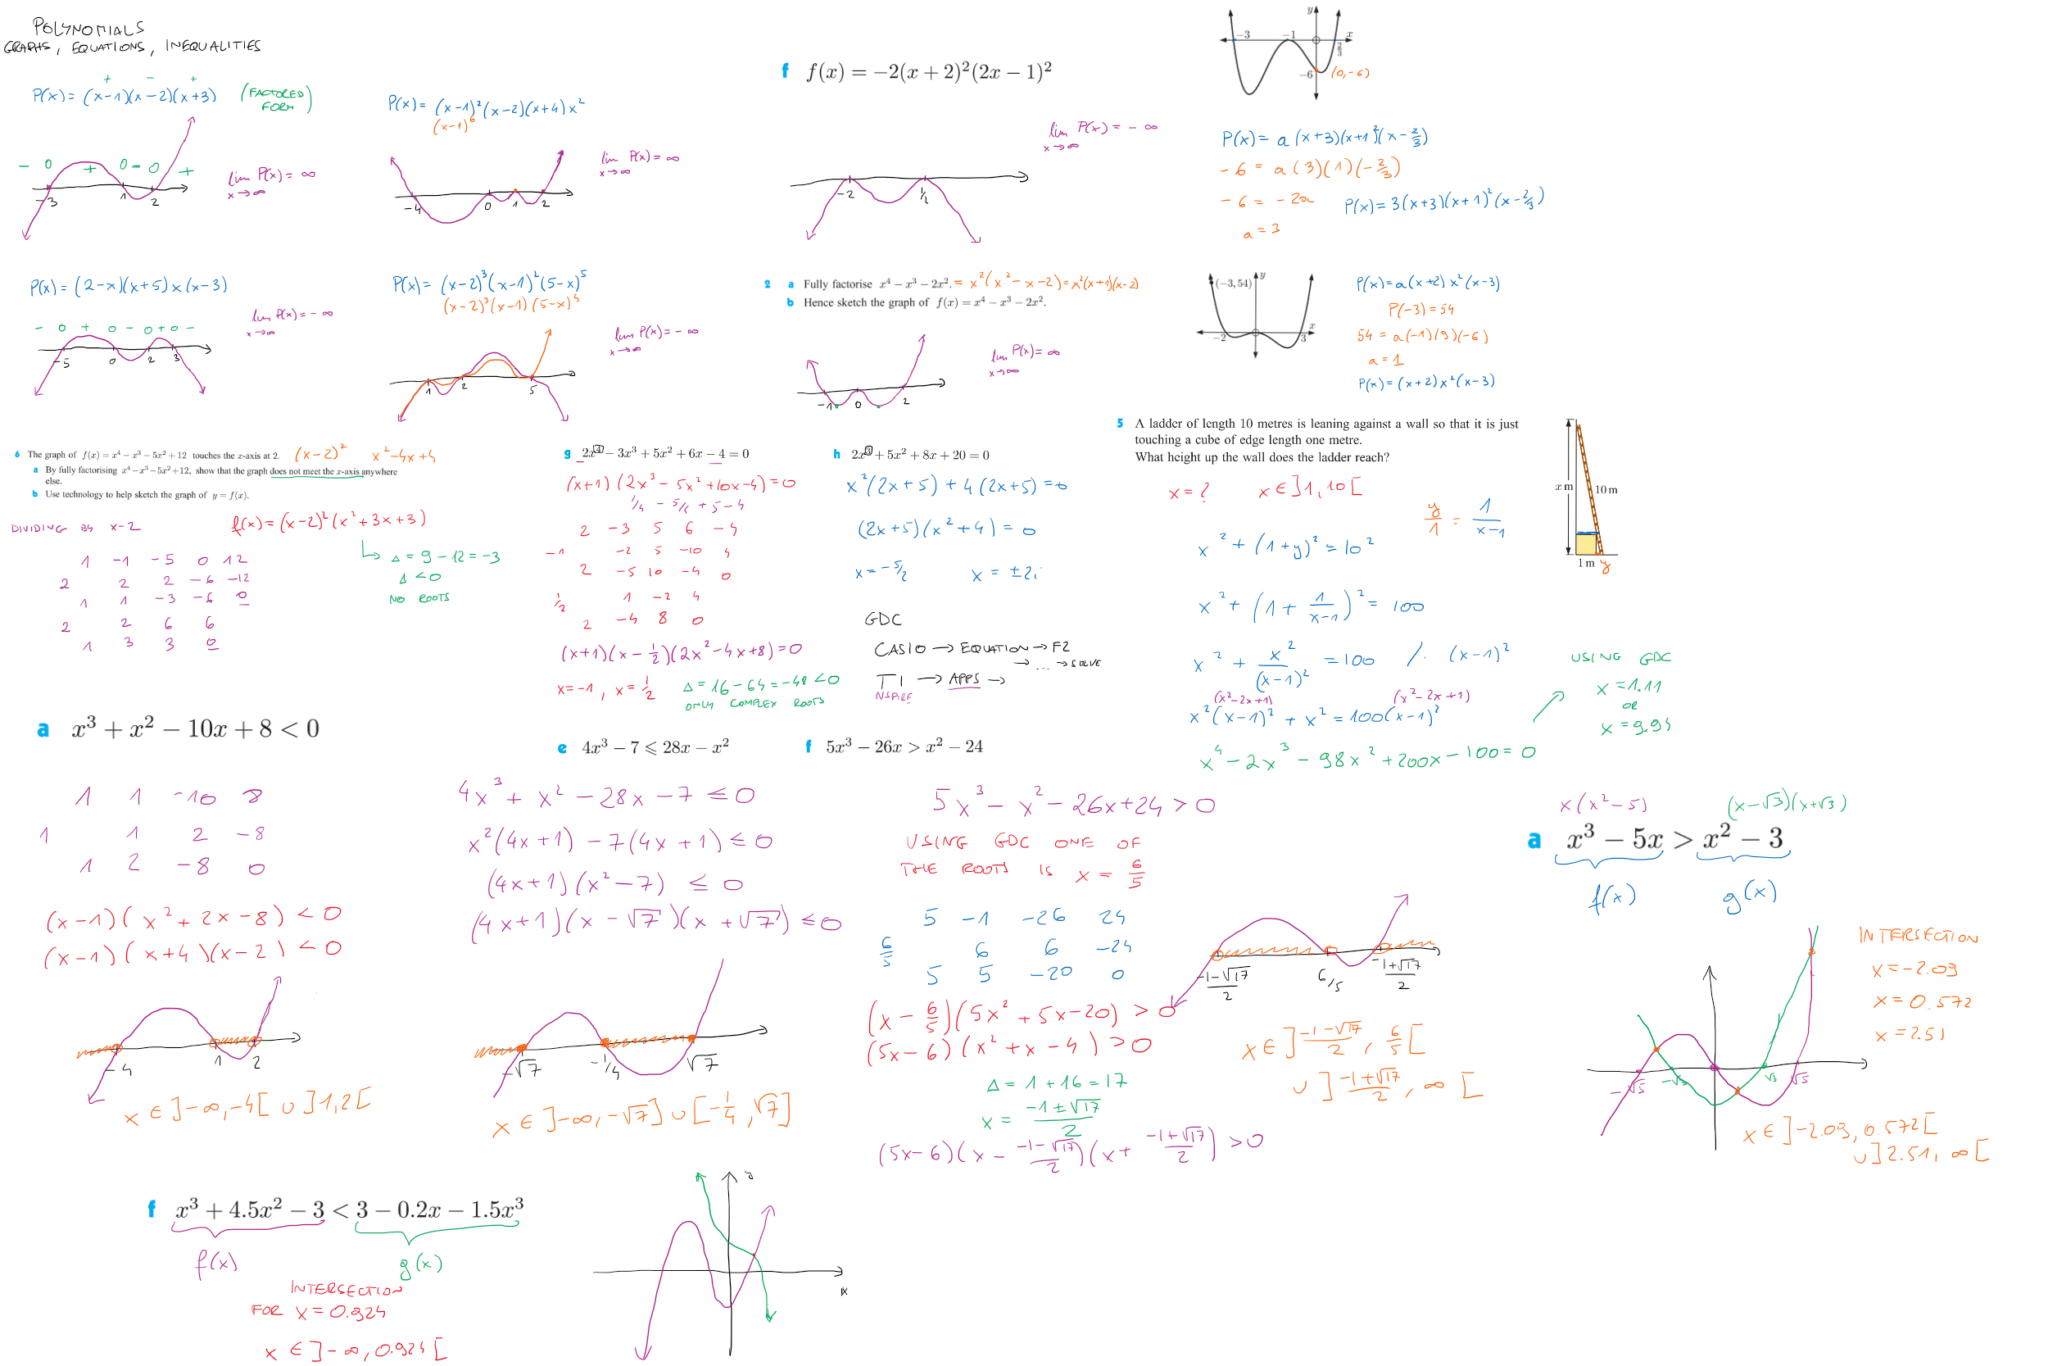 POLYNOMIALS
GRAPHS, EQUATIONS, INEQUALITIES
+ − +
P(x) = (x−1)(x−2)(x+3) (FACTORED FORM)
− 0 + 0 − 0 +
−3 1 2
lim P(x) = ∞
x→∞
P(x) = (x−1)²(x−2)(x+4)x²
(x−1)⁶
−4 0 1 2
lim P(x) = ∞
x→∞
f f(x) = −2(x + 2)²(2x − 1)²
−2 1/2
lim P(x) = −∞
x→∞
y
−3 −1 x
2/3
−6 (0,−6)
P(x) = a(x+3)(x+1)²(x−2/3)
−6 = a(3)(1)(−2/3)
−6 = −2a
a = 3
P(x) = 3(x+3)(x+1)²(x−2/3)
P(x) = (2−x)(x+5)x(x−3)
− 0 + 0 − 0 + 0 −
−5 0 2 3
lim P(x) = −∞
x→∞
P(x) = (x−2)³(x−1)²(5−x)⁵
(x−2)³(x−1)(5−x)⁴
1 2 5
lim P(x) = −∞
x→∞
2 a Fully factorise x⁴ − x³ − 2x². = x²(x²−x−2) = x²(x+1)(x−2)
b Hence sketch the graph of f(x) = x⁴ − x³ − 2x².
−1 0 2
lim P(x) = ∞
x→∞
(−3, 54) y
−2 3 x
P(x) = a(x+2)x²(x−3)
P(−3) = 54
54 = a(−1)(9)(−6)
a = 1
P(x) = (x+2)x²(x−3)
6 The graph of f(x) = x⁴ − x³ − 5x² + 12 touches the x-axis at 2. (x−2)² x²−4x+4
a By fully factorising x⁴ − x³ − 5x² + 12, show that the graph does not meet the x-axis anywhere
else.
b Use technology to help sketch the graph of y = f(x).
DIVIDING BY x−2
f(x) = (x−2)²(x²+3x+3)
1 −1 −5 0 12
2 2 2 −6 −12
1 1 −3 −6 0
2 2 6 6
1 3 3 0
Δ = 9−12 = −3
Δ < 0
NO ROOTS
g 2x④ − 3x³ + 5x² + 6x − 4 = 0
(x+1)(2x³ − 5x² + 10x − 4) = 0
2 −3 5 6 −4
−1 −2 5 −10 4
2 −5 10 −4 0
1/2 1 −2 4
2 −4 8 0
(x+1)(x−1/2)(2x²−4x+8) = 0
x = −1, x = 1/2
Δ = 16−64 = −48 < 0
ONLY COMPLEX ROOTS
h 2x③ + 5x² + 8x + 20 = 0
x²(2x+5) + 4(2x+5) = 0
(2x+5)(x²+4) = 0
x = −5/2 x = ±2i
GDC
CASIO → EQUATION → F2
→ ... → SOLVE
TI → APPS →
NSPIRE
5 A ladder of length 10 metres is leaning against a wall so that it is just
touching a cube of edge length one metre.
What height up the wall does the ladder reach?
x m 10 m
1 m y
x = ? x ∈ ]1, 10[
y/1 = 1/(x−1)
x² + (1+y)² = 10²
x² + (1 + 1/(x−1))² = 100
x² + x²/(x−1)² = 100 /· (x−1)²
(x²−2x+1) (x²−2x+1)
x²(x−1)² + x² = 100(x−1)²
x⁴ − 2x³ − 98x² + 200x − 100 = 0
USING GDC
x = 1.11
OR
x = 9.94
a x³ + x² − 10x + 8 < 0
1 1 −10 8
1 1 2 −8
1 2 −8 0
(x−1)(x²+2x−8) < 0
(x−1)(x+4)(x−2) < 0
−4 1 2
x ∈ ]−∞, −4[ ∪ ]1, 2[
e 4x³ − 7 ⩽ 28x − x²
4x³ + x² − 28x − 7 ≤ 0
x²(4x+1) − 7(4x+1) ≤ 0
(4x+1)(x²−7) ≤ 0
(4x+1)(x−√7)(x+√7) ≤ 0
−√7 −1/4 √7
x ∈ ]−∞, −√7] ∪ [−1/4, √7]
f 5x³ − 26x > x² − 24
5x³ − x² − 26x + 24 > 0
USING GDC ONE OF
THE ROOTS IS x = 6/5
5 −1 −26 24
6/5 6 6 −24
5 5 −20 0
(x − 6/5)(5x² + 5x − 20) > 0
(5x−6)(x² + x − 4) > 0
Δ = 1 + 16 = 17
x = (−1±√17)/2
(5x−6)(x − (−1−√17)/2)(x + (−1+√17)/2) > 0
(−1−√17)/2 6/5 (−1+√17)/2
x ∈ ](−1−√17)/2, 6/5[
∪ ](−1+√17)/2, ∞[
x(x²−5) (x−√3)(x+√3)
a x³ − 5x > x² − 3
f(x) g(x)
INTERSECTION
x = −2.09
x = 0.572
x = 2.51
−√5 −√3 √3 √5
x ∈ ]−2.09, 0.572[
∪ ]2.51, ∞[
f x³ + 4.5x² − 3 < 3 − 0.2x − 1.5x³
f(x) g(x)
INTERSECTION
FOR x = 0.924
x ∈ ]−∞, 0.924[
y
x